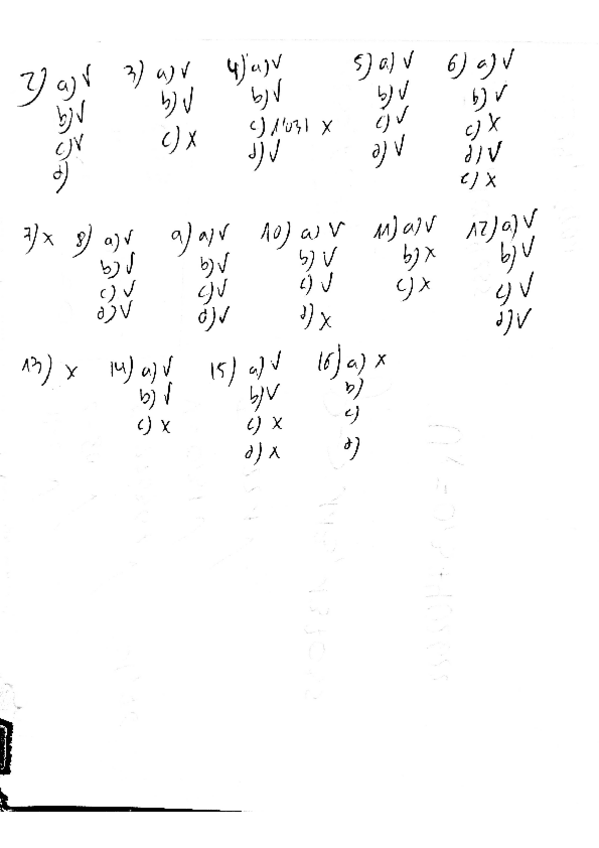 2) a) ✓ 3) a) ✓ 4) a) ✓ 5) a) ✓ 6) a) ✓
b) ✓ b) ✓ b) ✓ b) ✓ b) ✓
c) ✓ c) x c) x c) ✓ c) x
d) d) ✓ d) ✓ d) ✓
e) x
7) x 8) a) ✓ 9) a) ✓ 10) a) ✓ 11) a) ✓ 12) a) ✓
b) ✓ b) ✓ b) ✓ b) x b) ✓
c) ✓ c) ✓ c) ✓ c) x c) ✓
d) ✓ d) ✓ d) x d) ✓
13) x 14) a) ✓ 15) a) ✓ 16) a) x
b) ✓ b) ✓ b)
c) x c) x c)
d) x d)